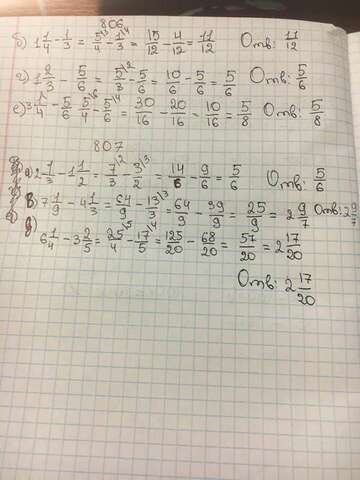 806
б) 1 1/4 - 1/3 = 5/4 - 1/3 = 15/12 - 4/12 = 11/12 Отв: 11/12
г) 1 2/3 - 5/6 = 5/3 - 5/6 = 10/6 - 5/6 = 5/6 Отв: 5/6
е) 1/4 - 5/6 5/4 - 5/6 = 30/16 - 20/16 = 10/16 = 5/8 Отв: 5/8
807
а) 2 1/3 - 1 1/2 = 7/3 - 3/2 = 14/6 - 9/6 = 5/6 Отв: 5/6
в) 7 1/9 - 4 1/3 = 64/9 - 13/3 = 64/9 - 39/9 = 25/9 = 2 9/7 Отв: 2 9/7
д) 6 1/4 - 3 2/5 = 25/4 - 17/5 = 125/20 - 68/20 = 57/20 = 2 17/20
Отв: 2 17/20